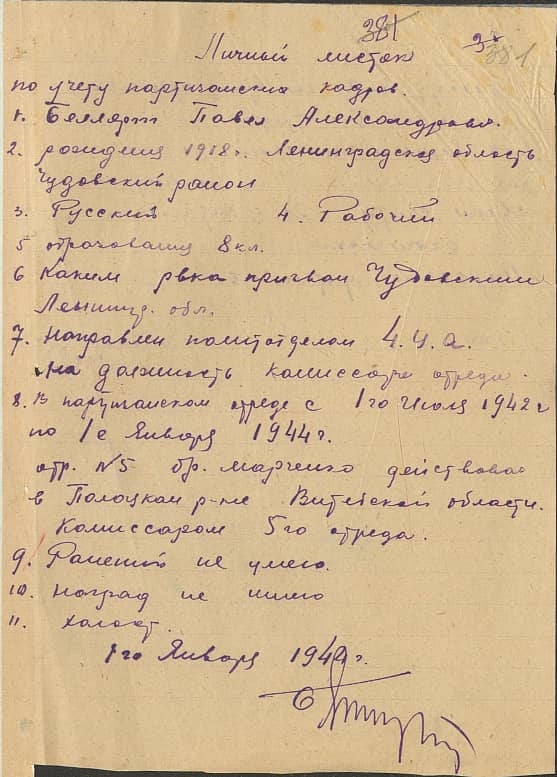 381
381
Личный листок
по учету партизанских кадров.
1. Павел Александрович.
2. рождения 1918 г. Ленинградская область
Чудовский район
3. Русский 4. Рабочий
5 образование 8 кл.
6 Каким рвка призван Чудовским
обл.
7. Направлен политотделом 4.У.А.
на должность комиссара отряда.
8. В партизанском отряде с 1го Июля 1942 г
по 1е Января 1944 г.
отр. №5 бр. Марченко действовал
в Полоцком р-не Витебской области.
Комиссаром 5го отряда.
9. Ранений не имею.
10. Наград не имею
11. Холост.
1го Января 1944 г.